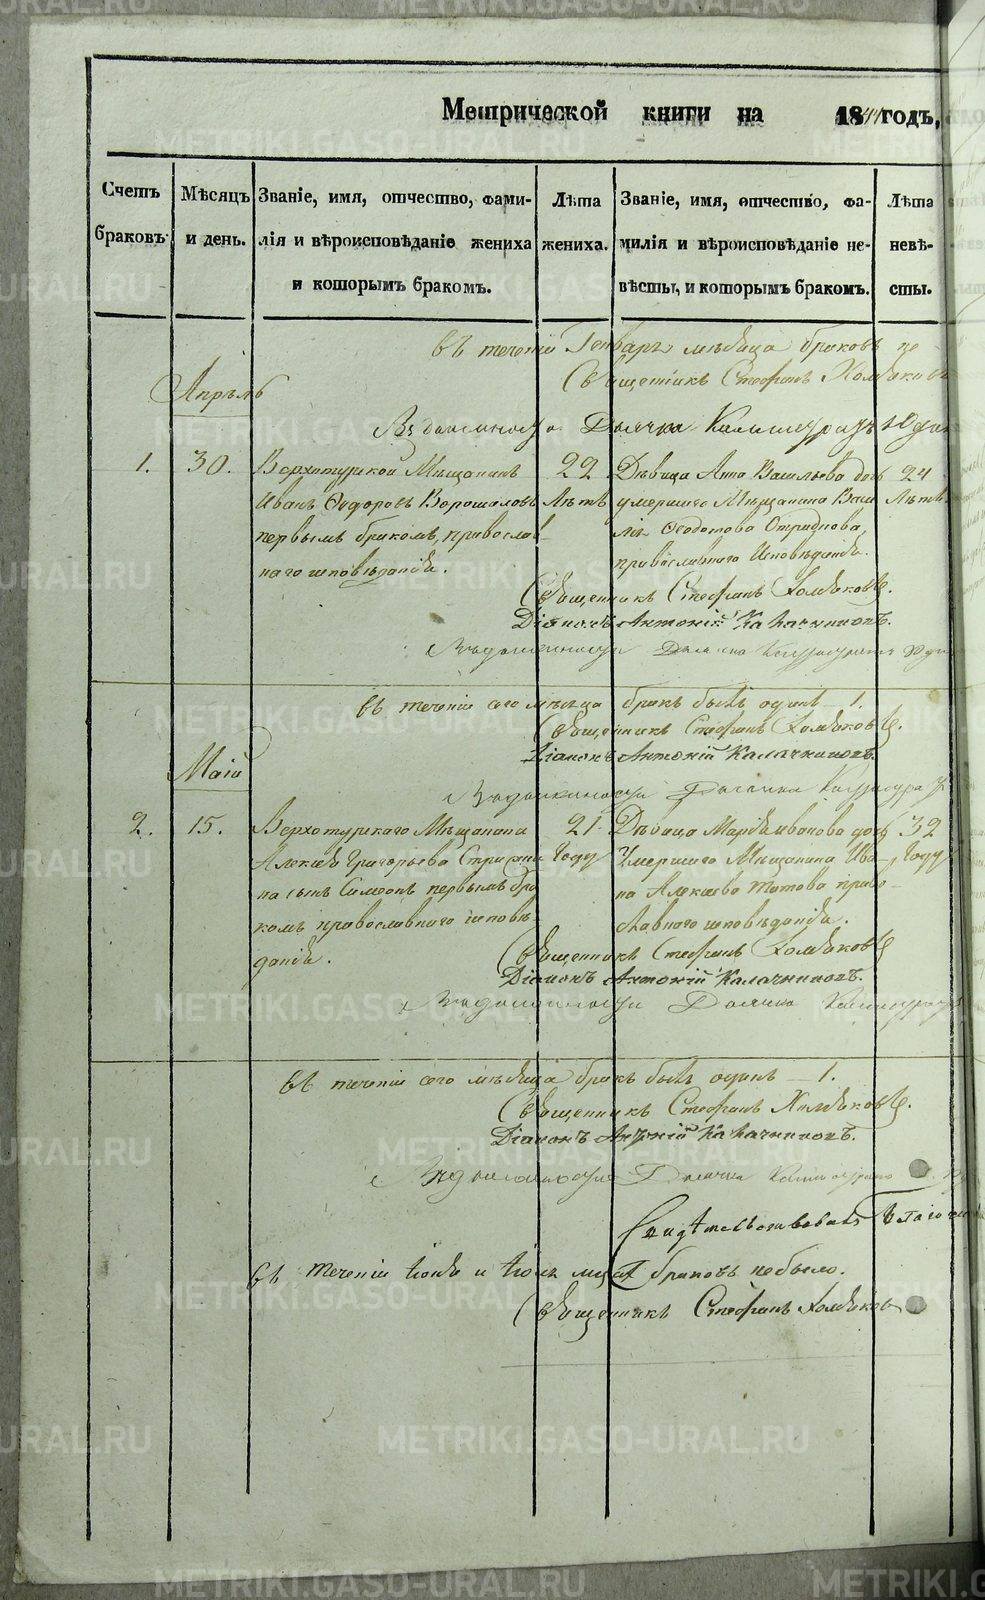 Метрической книги на 1844 годъ,
Счетъ браковъ.
Мѣсяцъ и день.
Званіе, имя, отчество, фами-
лія и вѣроисповѣданіе жениха
и которымъ бракомъ.
Лѣта жениха.
Званіе, имя, отчество, фа-
милія и вѣроисповѣданіе не-
вѣсты, и которымъ бракомъ.
Лѣта невѣ-
сты.
въ теченіи Генваря мѣсяца браковъ не
Священникъ Стефанъ Хомяковъ
Апрѣль
1.
30.
Верхотурской Мѣщанинъ
Иванъ Ѳедоровъ Ворошиловъ
первымъ бракомъ, православ-
наго исповѣданія.
22
Лѣтъ
Дѣвица Анна Васильева дочь
умершаго Мѣщанина Васи
лія Ѳедотова
православнаго исповѣданія.
24
Лѣтъ
Священникъ Стефанъ Хомяковъ.
Діаконъ Антоній Калачниковъ.
въ теченіи сего мѣсяца бракъ былъ одинъ 1.
Священникъ Стефанъ Хомяковъ.
Діаконъ Антоній Калачниковъ.
Маій
2.
15.
Верхотурскаго Мѣщанина
Алексѣя Григорьева
на сынъ Симеонъ первымъ бра
комъ православнаго исповѣ-
данія.
21
Году
Дѣвица Марѳа Иванова дочь
Умершаго Мѣщанина Ива-
на Алексѣева Титова право-
славнаго исповѣданія.
32
Году
Священникъ Стефанъ Хомяковъ
Діаконъ Антоній Калачниковъ.
въ теченіи сего мѣсяца бракъ былъ одинъ 1.
Священникъ Стефанъ Хомяковъ.
Діаконъ Антоній Калачниковъ.
Свидѣтельствовалъ
въ теченіи Іюня и Іюля браковъ небыло.
Священникъ Стефанъ Хомяковъ
METRIKI.GASO-URAL.RU